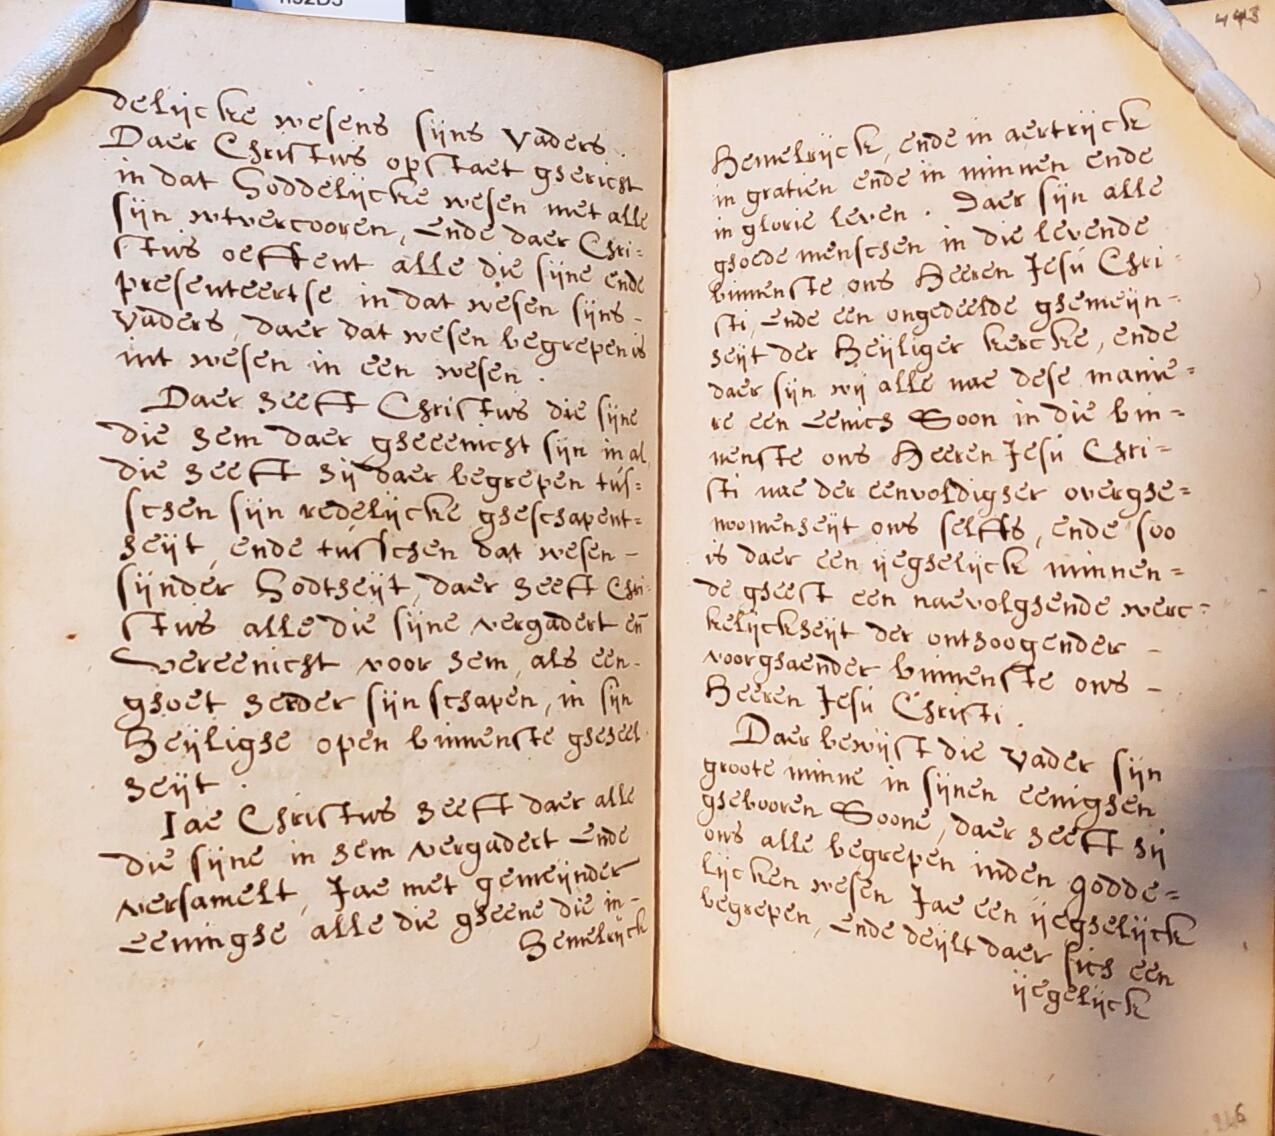 delijcke wesens sijns Vaders.
Daer Christus opstaet ghericht
in dat Goddelijcke wesen met alle
sijn wtvercooren, ende daer Chri=
stus oeffent alle die sijne ende
presenteertse in dat wesen sijns -
Vaders, daer dat wesen begrepen is
int wesen in een wesen.
Daer heeft Christus die sijne
die hem daer gheeenicht sijn in al,
die heeft hij daer begrepen tús=
schen sijn redelijcke gheschapent=
heijt, ende tusschen dat wesen -
sijnder Godtheijt, daer heeft Chri-
stus alle die sijne vergadert en̄
vereenicht voor hem, als een -
ghoet herder sijn schapen, in sijn
Heijlighe open binnenste gheheel-
heijt.
Jae Christus heeft daer alle
die sijne in hem vergadert ende
versamelt, Jae met gemeijnder
eeninghe alle die gheene die in -
Hemelrijck
443
Hemelrijck, ende in aertrijck
in gratien ende in minnen ende
in glorie leven. Daer sijn alle
ghoede menschen in die levende
binnenste ons Heeren Jesú Chri-
sti, ende een ongedeelde ghemeijn-
heijt der Heijliger kercke, ende
daer sijn wij alle nae dese manie=
re een eenich Soon in die bin=
nenste ons Heeren Jesú Chri=
sti nae der eenvoldigher overghe=
noomenheijt ons selffs, ende soo
is daer een ijeghelijck minnen=
de gheest een naevolghende werc=
kelijckheijt der onthoogender -
voorghaender binnenste ons -
Heeren Jesú Christi.
Daer bewijst die Vader sijn
groote minne in sijnen eenighen
ghebooren Soone, daer heeft hij
ons alle begrepen inden godde=
lijcken wesen Jae een ijeghelijck
begrepen, ende deijlt daer sich een
ijegelijck